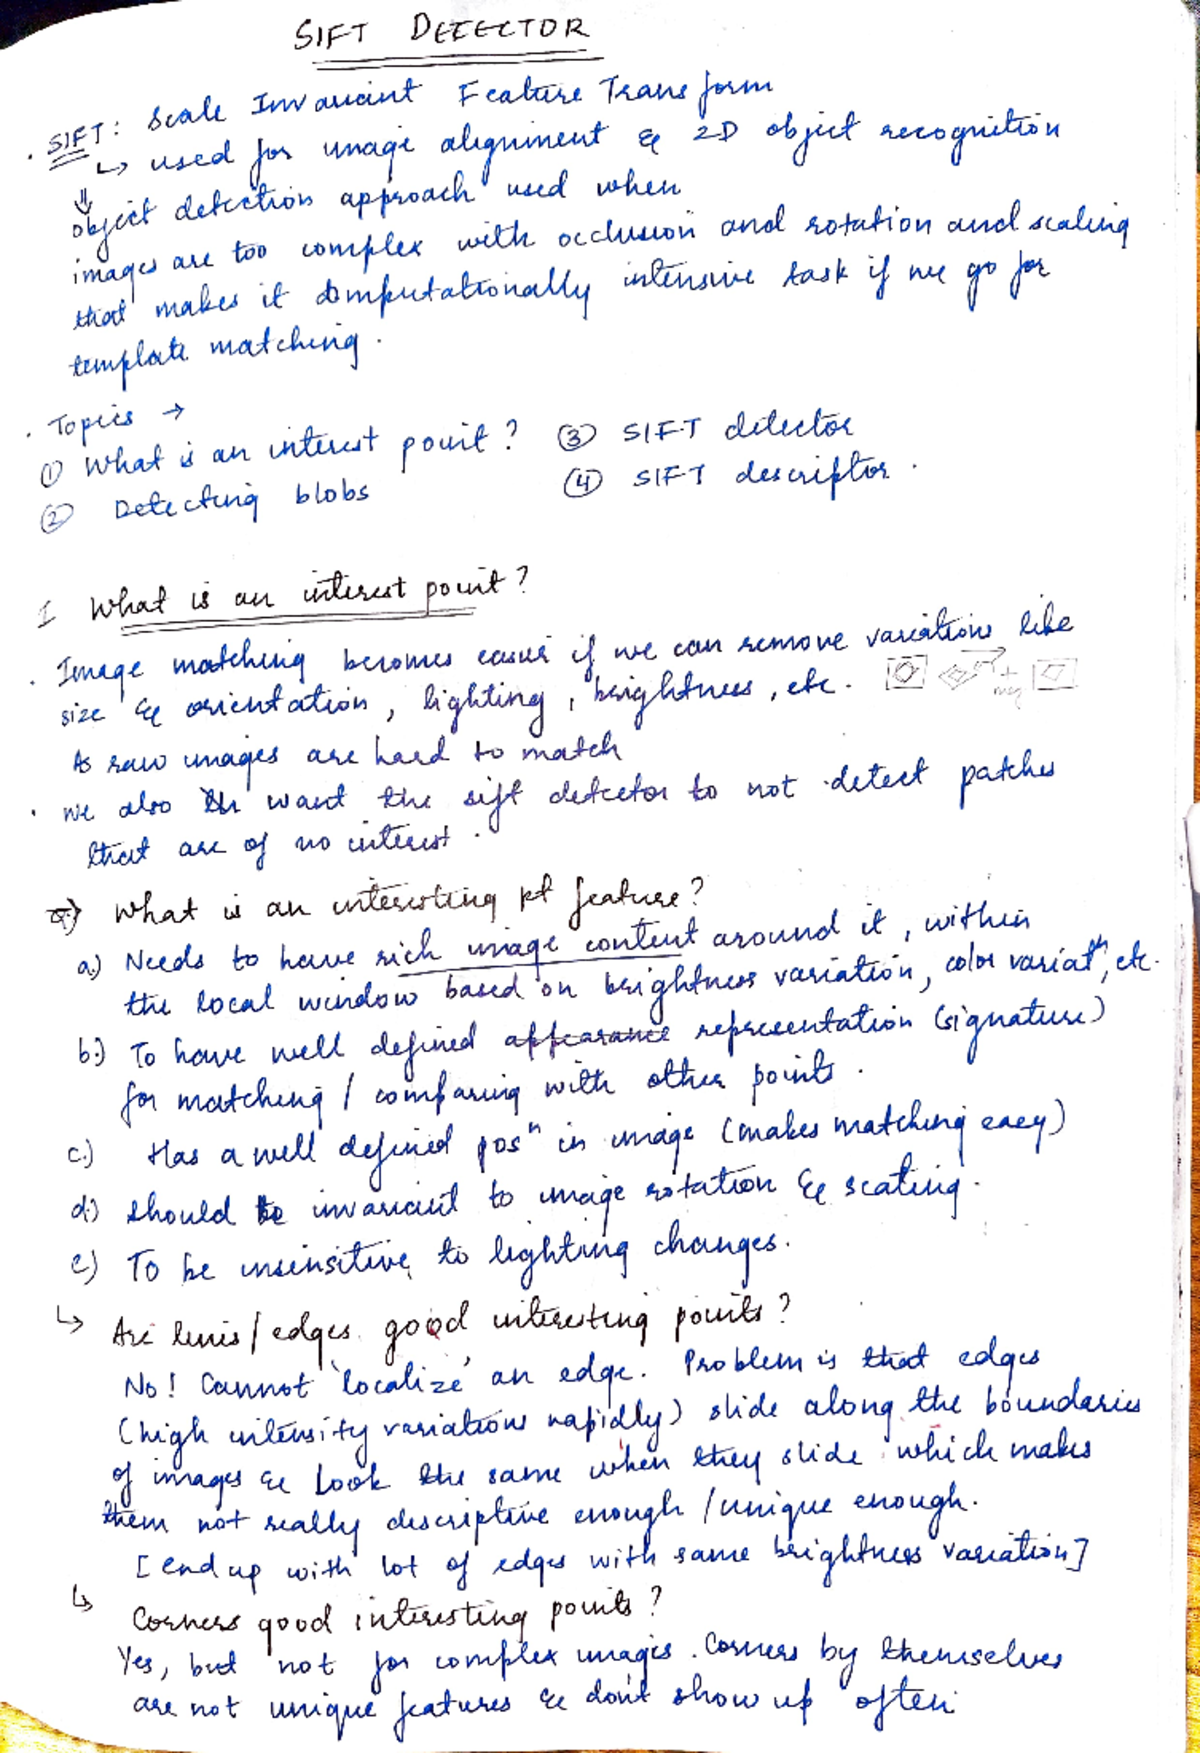 SIFT DETECTOR
. SIFT: Scale Invariant Feature Transform
↳ used for image alignment & 2D object recognition
⇓
object detection approach used when
images are too complex with occlusion and rotation and scaling
that makes it computationally intensive task if we go for
template matching.
. Topics →
① What is an interest point? ③ SIFT detector
② Detecting blobs ④ SIFT descriptor.
I What is an interest point?
. Image matching becomes easier if we can remove variations like
size & orientation, lighting, brightness, etc.
As raw images are hard to match
. We also want the sift detector to not detect patches
that are of no interest.
Q) What is an interesting pt feature?
a.) Needs to have rich image content around it, within
the local window based on brightness variation, color variatⁿ, etc.
b.) To have well defined appearance representation (signature)
for matching / comparing with other points.
c.) Has a well defined posⁿ in image (makes matching easy)
d.) should be invariant to image rotation & scaling.
e) To be insensitive to lighting changes.
↳ Are lines/edges good interesting points?
No! Cannot 'localize' an edge. Problem is that edges
(high intensity variations rapidly) slide along the boundaries
of images & look the same when they slide which makes
them not really descriptive enough / unique enough.
[end up with lot of edges with same brightness variation]
↳ Corners good interesting points?
Yes, but not for complex images. Corners by themselves
are not unique features & dont show up often